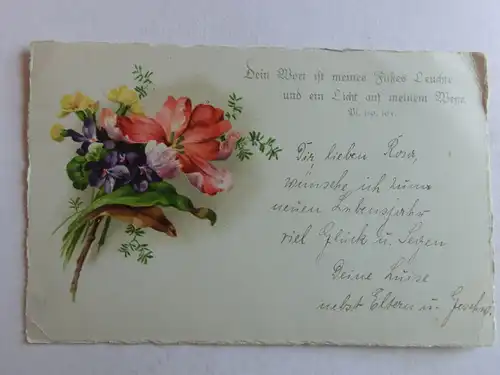 Dein Wort ist meines Fußes Leuchte
und ein Licht auf meinem Wege.
Pf. 119, 105.
Dir, lieben Rosa,
wünsche ich zum
neuen Lebensjahr
viel Glück u. Segen
Deine Luise
nebst Eltern u. Geschw.